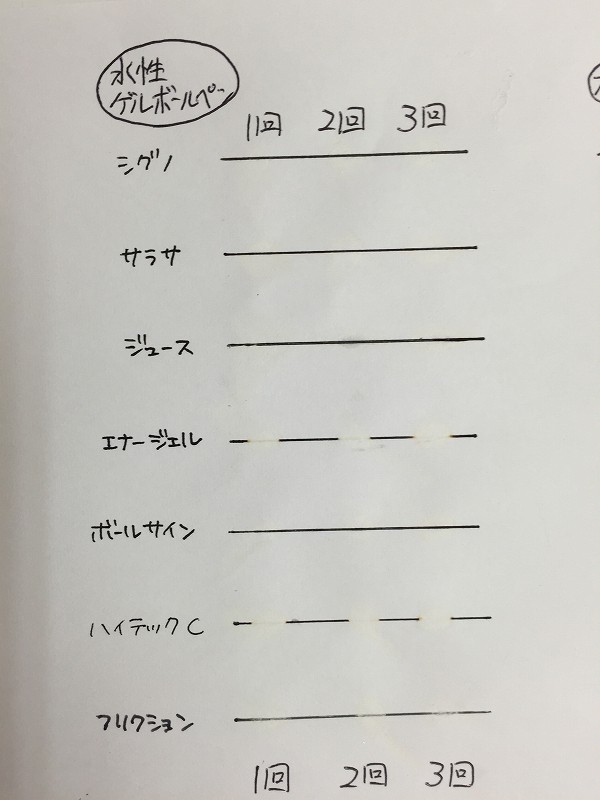 水性
ゲルボールペン
1回 2回 3回
シグノ
サラサ
ジュース
エナージェル
ボールサイン
ハイテックC
フリクション
1回 2回 3回